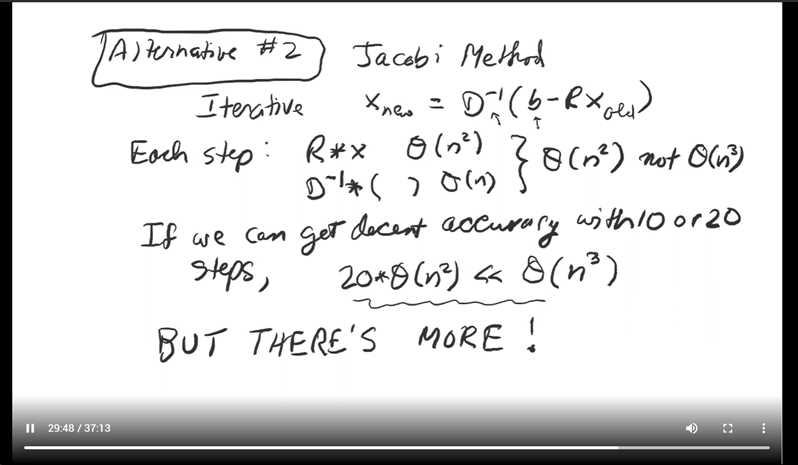 Alternative #2 Jacobi Method
Iterative x_new = D⁻¹(b - Rx_old)
Each step: R*x θ(n²) } θ(n²) not θ(n³)
D⁻¹*( ) θ(n)
If we can get decent accuracy with 10 or 20
steps, 20*θ(n²) << θ(n³)
BUT THERE'S MORE!
29:48 / 37:13